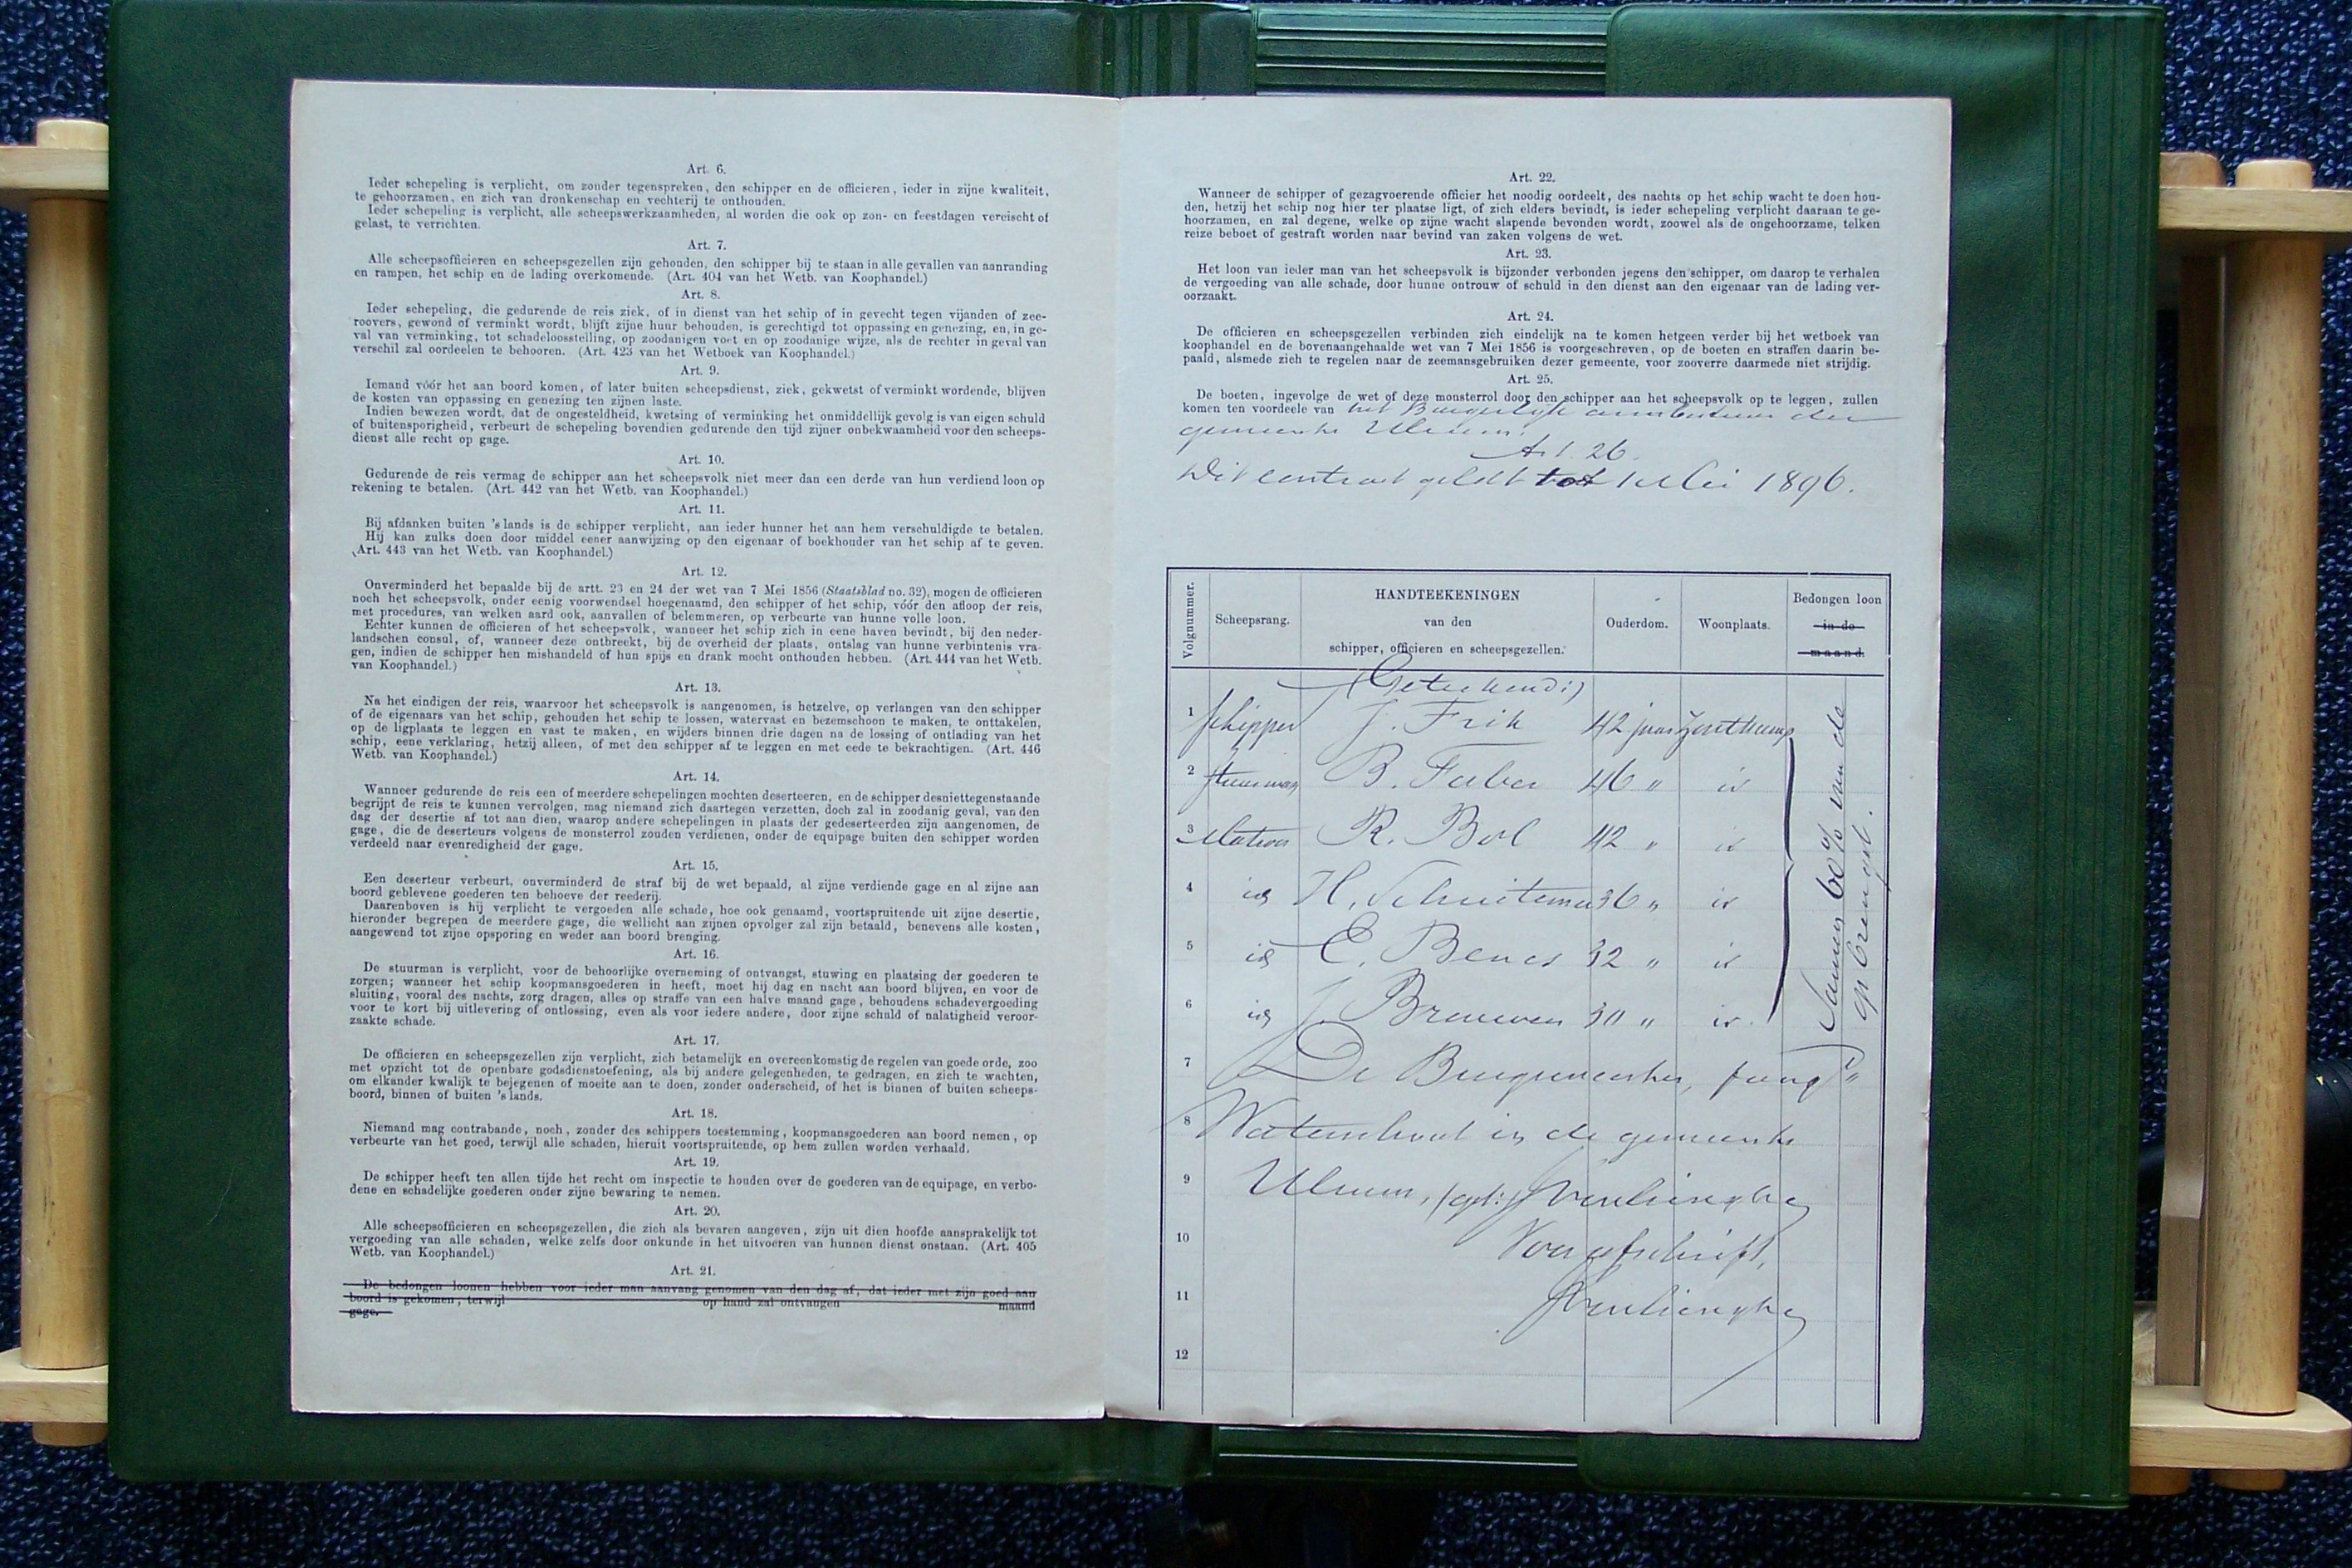 Art. 6.
Ieder schepeling is verplicht, om zonder tegenspreken, den schipper en de officieren, ieder in zijne kwaliteit,
te gehoorzamen, en zich van dronkenschap en vechterij te onthouden.
Ieder schepeling is verplicht, alle scheepswerkzaamheden, al worden die ook op zon- en feestdagen vereischt of
gelast, te verrichten.
Art. 7.
Alle scheepsofficieren en scheepsgezellen zijn gehouden, den schipper bij te staan in alle gevallen van aanranding
en rampen, het schip en de lading overkomende. (Art. 404 van het Wetb. van Koophandel.)
Art. 8.
Ieder schepeling, die gedurende de reis ziek, of in dienst van het schip of in gevecht tegen vijanden of zee-
roovers, gewond of verminkt wordt, blijft zijne huur behouden, is gerechtigd tot oppassing en genezing, en, in ge-
val van verminking, tot schadeloosstelling, op zoodanigen voet en op zoodanige wijze, als de rechter in geval van
verschil zal oordeelen te behooren. (Art. 423 van het Wetboek van Koophandel.)
Art. 9.
Iemand vóór het aan boord komen, of later buiten scheepsdienst, ziek, gekwetst of verminkt wordende, blijven
de kosten van oppassing en genezing ten zijnen laste.
Indien bewezen wordt, dat de ongesteldheid, kwetsing of verminking het onmiddellijk gevolg is van eigen schuld
of buitensporigheid, verbeurt de schepeling bovendien gedurende den tijd zijner onbekwaamheid voor den scheeps-
dienst alle recht op gage.
Art. 10.
Gedurende de reis vermag de schipper aan het scheepsvolk niet meer dan een derde van hun verdiend loon op
rekening te betalen. (Art. 442 van het Wetb. van Koophandel.)
Art. 11.
Bij afdanken buiten 's lands is de schipper verplicht, aan ieder hunner het aan hem verschuldigde te betalen.
Hij kan zulks doen door middel eener aanwijzing op den eigenaar of boekhouder van het schip af te geven.
(Art. 443 van het Wetb. van Koophandel.)
Art. 12.
Onverminderd het bepaalde bij de artt. 23 en 24 der wet van 7 Mei 1856 (Staatsblad no. 32), mogen de officieren
noch het scheepsvolk, onder eenig voorwendsel hoegenaamd, den schipper of het schip, vóór den afloop der reis,
met procedures, van welken aard ook, aanvallen of belemmeren, op verbeurte van hunne volle loon.
Echter kunnen de officieren of het scheepsvolk, wanneer het schip zich in eene haven bevindt, bij den neder-
landschen consul, of, wanneer deze ontbreekt, bij de overheid der plaats, ontslag van hunne verbintenis vra-
gen, indien de schipper hen mishandeld of hun spijs en drank mocht onthouden hebben. (Art. 444 van het Wetb.
van Koophandel.)
Art. 13.
Na het eindigen der reis, waarvoor het scheepsvolk is aangenomen, is hetzelve, op verlangen van den schipper
of de eigenaars van het schip, gehouden het schip te lossen, watervast en bezemschoon te maken, te onttakelen,
op de ligplaats te leggen en vast te maken, en wijders binnen drie dagen na de lossing of ontlading van het
schip, eene verklaring, hetzij alleen, of met den schipper af te leggen en met eede te bekrachtigen. (Art. 446
Wetb. van Koophandel.)
Art. 14.
Wanneer gedurende de reis een of meerdere schepelingen mochten deserteeren, en de schipper desniettegenstaande
begrijpt de reis te kunnen vervolgen, mag niemand zich daartegen verzetten, doch zal in zoodanig geval, van den
dag der desertie af tot aan dien, waarop andere schepelingen in plaats der gedeserteerden zijn aangenomen, de
gage, die de deserteurs volgens de monsterrol zouden verdienen, onder de equipage buiten den schipper worden
verdeeld naar evenredigheid der gage.
Art. 15.
Een deserteur verbeurt, onverminderd de straf bij de wet bepaald, al zijne verdiende gage en al zijne aan
boord geblevene goederen ten behoeve der reederij.
Daarenboven is hij verplicht te vergoeden alle schade, hoe ook genaamd, voortspruitende uit zijne desertie,
hieronder begrepen de meerdere gage, die wellicht aan zijnen opvolger zal zijn betaald, benevens alle kosten,
aangewend tot zijne opsporing en weder aan boord brenging.
Art. 16.
De stuurman is verplicht, voor de behoorlijke overneming of ontvangst, stuwing en plaatsing der goederen te
zorgen; wanneer het schip koopmansgoederen in heeft, moet hij dag en nacht aan boord blijven, en voor de
sluiting, vooral des nachts, zorg dragen, alles op straffe van een halve maand gage, behoudens schadevergoeding
voor te kort bij uitlevering of ontlossing, even als voor iedere andere, door zijne schuld of nalatigheid veroor-
zaakte schade.
Art. 17.
De officieren en scheepsgezellen zijn verplicht, zich betamelijk en overeenkomstig de regelen van goede orde, zoo
met opzicht tot de openbare godsdienstoefening, als bij andere gelegenheden, te gedragen, en zich te wachten,
om elkander kwalijk te bejegenen of moeite aan te doen, zonder onderscheid, of het is binnen of buiten scheeps-
boord, binnen of buiten 's lands.
Art. 18.
Niemand mag contrabande, noch, zonder des schippers toestemming, koopmansgoederen aan boord nemen, op
verbeurte van het goed, terwijl alle schaden, hieruit voortspruitende, op hem zullen worden verhaald.
Art. 19.
De schipper heeft ten allen tijde het recht om inspectie te houden over de goederen van de equipage, en verbo-
dene en schadelijke goederen onder zijne bewaring te nemen.
Art. 20.
Alle scheepsofficieren en scheepsgezellen, die zich als bevaren aangeven, zijn uit dien hoofde aansprakelijk tot
vergoeding van alle schaden, welke zelfs door onkunde in het uitvoeren van hunnen dienst onstaan. (Art. 405
Wetb. van Koophandel.)
Art. 21.
De bedongen loonen hebben voor ieder man aanvang genomen van den dag af, dat ieder met zijn goed aan
boord is gekomen, terwijl op hand zal ontvangen maand
gage.
Art. 22.
Wanneer de schipper of gezagvoerende officier het noodig oordeelt, des nachts op het schip wacht te doen hou-
den, hetzij het schip nog hier ter plaatse ligt, of zich elders bevindt, is ieder schepeling verplicht daaraan te ge-
hoorzamen, en zal degene, welke op zijne wacht slapende bevonden wordt, zoowel als de ongehoorzame, telken
reize beboet of gestraft worden naar bevind van zaken volgens de wet.
Art. 23.
Het loon van ieder man van het scheepsvolk is bijzonder verbonden jegens den schipper, om daarop te verhalen
de vergoeding van alle schade, door hunne ontrouw of schuld in den dienst aan den eigenaar van de lading ver-
oorzaakt.
Art. 24.
De officieren en scheepsgezellen verbinden zich eindelijk na te komen hetgeen verder bij het wetboek van
koophandel en de bovenaangehaalde wet van 7 Mei 1856 is voorgeschreven, op de boeten en straffen daarin be-
paald, alsmede zich te regelen naar de zeemansgebruiken dezer gemeente, voor zooverre daarmede niet strijdig.
Art. 25.
De boeten, ingevolge de wet of deze monsterrol door den schipper aan het scheepsvolk op te leggen, zullen
komen ten voordeele van het Burgerlijk armbestuur der
gemeente Ulrum.
Art. 26.
Dit contract geldt tot 1 Mei 1896.
Volgnummer. Scheepsrang. HANDTEEKENINGEN van den schipper, officieren en scheepsgezellen. Ouderdom. Woonplaats. Bedongen loon in de maand.
(Geteekend:)
1 schipper J. Frik 42 jaar Zoutkamp
2 stuurman B. Faber 46 " id
3 Matroos R. Bol 42 " id
4 id H. Schuitema 36 " id
5 id E. Benes 32 " id
6 id J. Brouwer 30 " id
Samen 60% van de
opbrengst.
7 De Burgemeester, fung
8 Waterschout in de gemeente
9 Ulrum, (get:)
10 Voor afschrift,
11
12